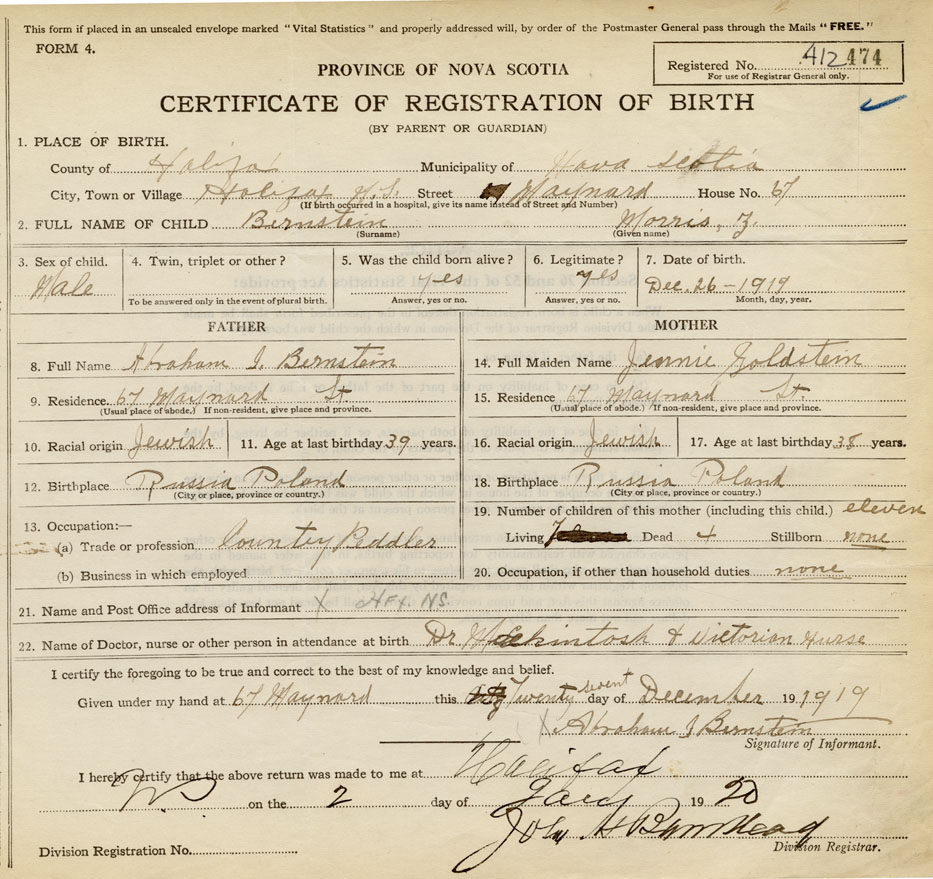 This form if placed in an unsealed envelope marked "Vital Statistics" and properly addressed will, by order of the Postmaster General pass through the Mails "FREE."
FORM 4.
Registered No. 412474
For use of Registrar General only.
PROVINCE OF NOVA SCOTIA
CERTIFICATE OF REGISTRATION OF BIRTH
(BY PARENT OR GUARDIAN)
1. PLACE OF BIRTH.
County of Halifax Municipality of Nova Scotia
City, Town or Village Halifax N.S. Street Maynard House No. 67
(If birth occurred in a hospital, give its name instead of Street and Number)
2. FULL NAME OF CHILD Bernstein Morris, Z.
(Surname) (Given name)
3. Sex of child. 4. Twin, triplet or other? 5. Was the child born alive? 6. Legitimate? 7. Date of birth.
Male yes yes Dec. 26-1919
To be answered only in the event of plural birth. Answer, yes or no. Answer, yes or no. Month, day, year.
FATHER MOTHER
8. Full Name Abraham I. Bernstein 14. Full Maiden Name Jennie Goldstein
9. Residence. 67 Maynard St. 15. Residence 67 Maynard St.
(Usual place of abode.) If non-resident, give place and province. (Usual place of abode.) If non-resident, give place and province.
10. Racial origin Jewish 11. Age at last birthday 39 years. 16. Racial origin Jewish 17. Age at last birthday 38 years.
12. Birthplace Russia Poland 18. Birthplace Russia Poland
(City or place, province or country.) (City or place, province or country.)
13. Occupation:— 19. Number of children of this mother (including this child.) eleven
(a) Trade or profession Country Peddler Living Dead 4 Stillborn none
(b) Business in which employed 20. Occupation, if other than household duties none
21. Name and Post Office address of Informant X Hfx. NS.
22. Name of Doctor, nurse or other person in attendance at birth Dr. & Victorian Nurse
I certify the foregoing to be true and correct to the best of my knowledge and belief.
Given under my hand at 67 Maynard this Twenty sevent day of December 19 1919
X Abraham I Bernstein
Signature of Informant.
I hereby certify that the above return was made to me at Halifax
NS on the 2 day of 19 20
Division Registration No.
Division Registrar.